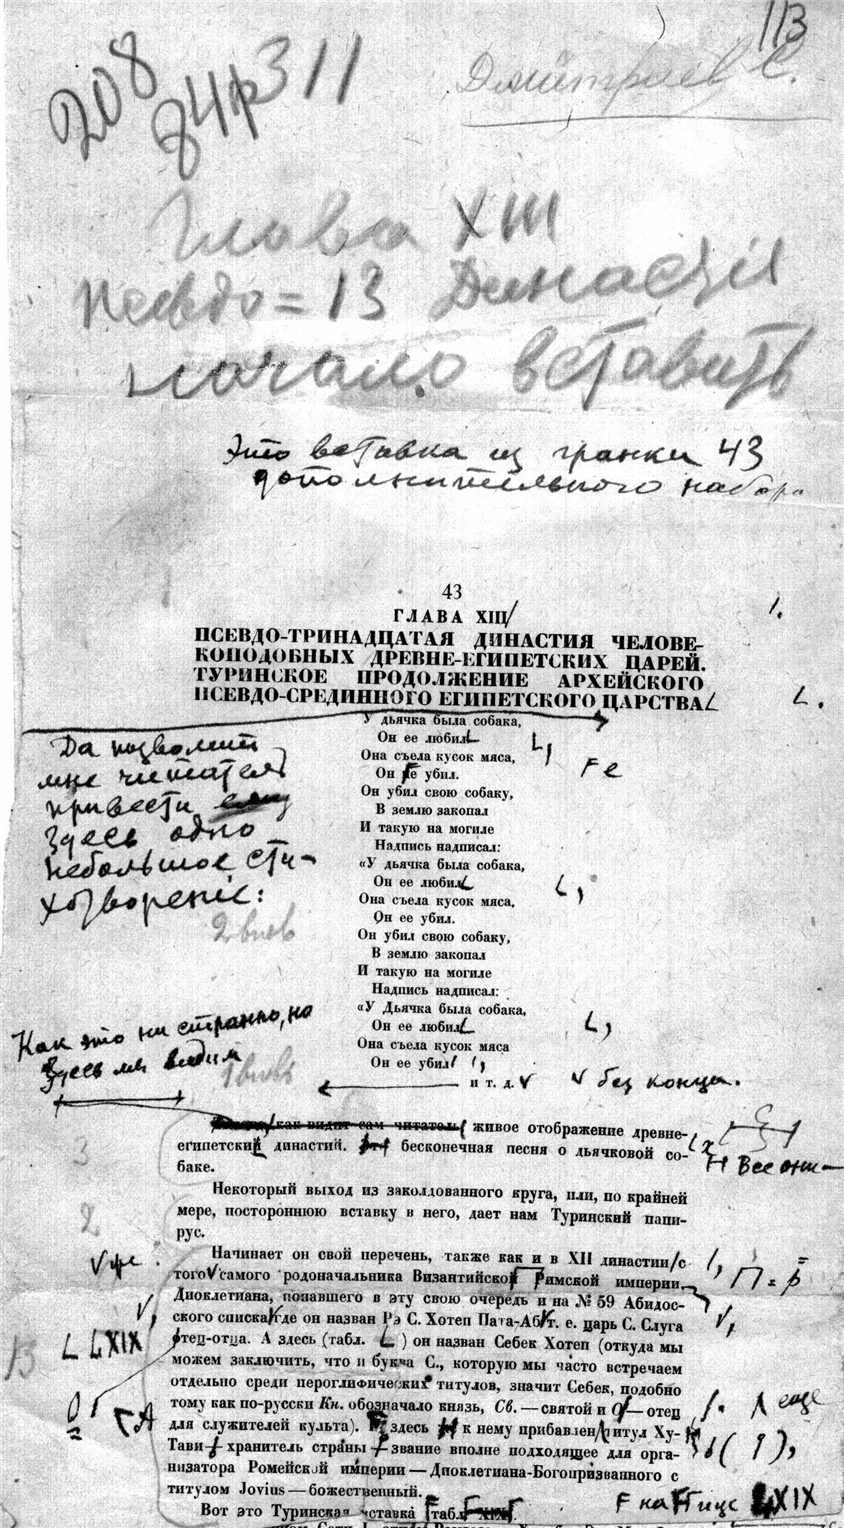 113
208
84р311
Дмитриев С.
Глава XIII
псевдо=13 Династия
начало вставить
Это вставка из гранки 43
дополнительного набора
43
ГЛАВА XIII
ПСЕВДО-ТРИНАДЦАТАЯ ДИНАСТИЯ ЧЕЛОВЕ-
КОПОДОБНЫХ ДРЕВНЕ-ЕГИПЕТСКИХ ЦАРЕЙ.
ТУРИНСКОЕ ПРОДОЛЖЕНИЕ АРХЕЙСКОГО
ПСЕВДО-СРЕДИННОГО ЕГИПЕТСКОГО ЦАРСТВА
Да позволит
мне читатель
привести
здесь одно
небольшое сти-
хотворение:
У дьячка была собака,
Он ее любил
Она съела кусок мяса,
Он ее убил.
Он убил свою собаку,
В землю закопал
И такую на могиле
Надпись надписал:
«У дьячка была собака,
Он ее любил
Она съела кусок мяса,
Он ее убил.
Он убил свою собаку,
В землю закопал
И такую на могиле
Надпись надписал:
«У Дьячка была собака,
Он ее любил
Она съела кусок мяса
Он ее убил
и т. д.
без конца.
2 вновь
Как это ни странно, но
здесь мы видим
1 вновь
как видит сам читатель живое отображение древне-
египетский династий. бесконечная песня о дьячковой со-
баке.
Все они—
3
Некоторый выход из заколдованного круга, или, по крайней
мере, постороннюю вставку в него, дает нам Туринский папи-
рус.
2
Начинает он свой перечень, также как и в XII династии с
того самого родоначальника Византийской Римской империи
же
Диоклетиана, попавшего в эту свою очередь и на № 59 Абидос-
ского списка где он назван Рэ С. Хотеп Пата-Аб т. е. царь С. Слуга
отец-отца. А здесь (табл. ) он назван Себек Хотеп (откуда мы
LXIX
13
можем заключить, что и буква С., которую мы часто встречаем
отдельно среди иероглифических титулов, значит Себек, подобно
тому как по-русски Кн. обозначало князь, Св. — святой и О — отец
еще
для служителей культа). здесь к нему прибавлен титул Ху-
Тави — хранитель страны — звание вполне подходящее для орга-
низатора Ромейской империи — Диоклетиана-Богопризванного с
титулом Jovius — божественный.
Вот это Туринская вставка табл. XIX.
на LXIX